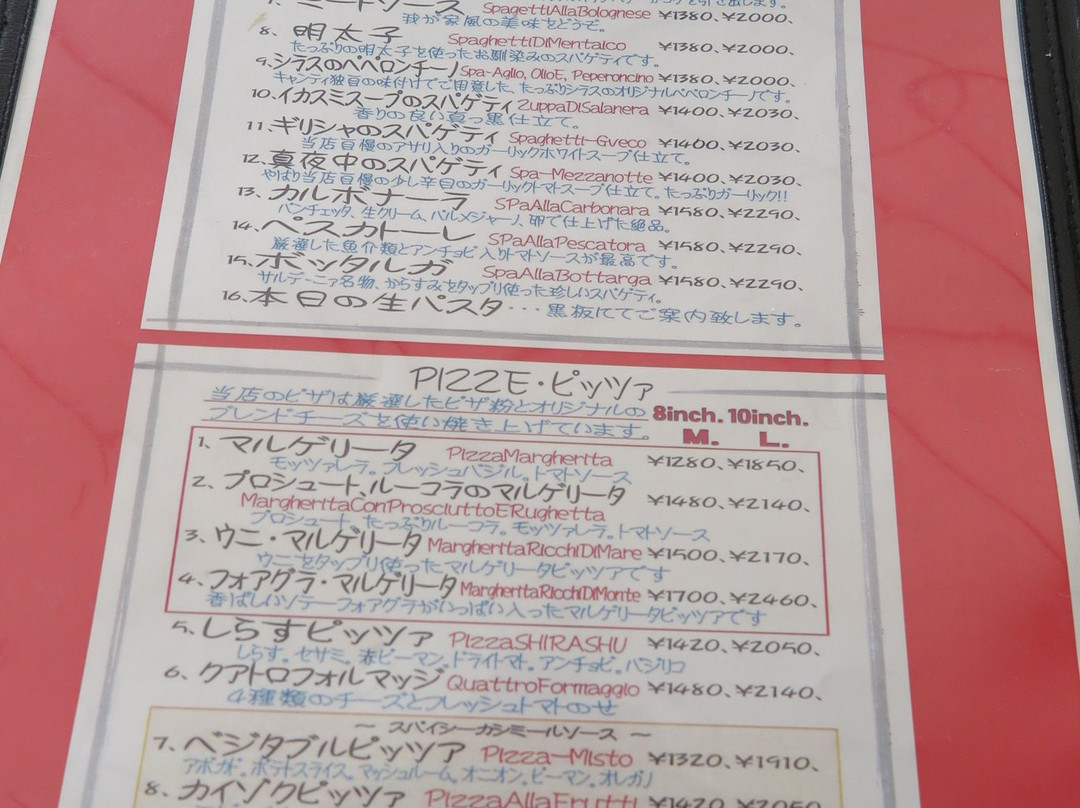 ミートソース SpagettiAllaBolognese ¥1380、¥2000、
我が家風の美味をどうぞ。
8、明太子 SpaghettiDiMentaico ¥1380、¥2000、
たっぷりの明太子を使ったお馴染みのスパゲティです。
9、シラスのペペロンチーノ Spa-Aglio, OlioE, Peperoncino ¥1380、¥2000、
キャンティ独自の味付けでご用意した、たっぷりシラスのオリジナルペペロンチーノです。
10、イカスミスープのスパゲティ ZuppaDiSalanera ¥1400、¥2030、
香りの良い真っ黒仕立て。
11、ギリシャのスパゲティ Spaghetti-Gveco ¥1400、¥2030、
当店自慢のアサリ入りのガーリックホワイトスープ仕立て。
12、真夜中のスパゲティ Spa-Mezzanotte ¥1400、¥2030、
やはり当店自慢の少し辛目のガーリックトマトスープ仕立て。たっぷりガーリック!!
13、カルボナーラ SPaAllaCarbonara ¥1580、¥2290、
パンチェッタ、生クリーム、パルメジャーノ、卵で仕上げた絶品。
14、ペスカトーレ SPaAllaPescatora ¥1580、¥2290、
厳選した魚介類とアンチョビ入りトマトソースが最高です。
15、ボッタルガ SpaAllaBottarga ¥1580、¥2290、
サルデーニァ名物、からすみをタップリ使った珍しいスパゲティ。
16、本日の生パスタ・・・黒板にてご案内致します。
PIZZE・ピッツァ
当店のピザは厳選したピザ粉とオリジナルの 8inch. 10inch.
ブレンドチーズを使い焼き上げています。 M. L.
1、マルゲリータ PizzaMargheritta ¥1280、¥1850、
モッツァレラ。フレッシュバジル。トマトソース
2、プロシュート、ルーコラのマルゲリータ ¥1480、¥2140、
MargherittaConProsciuttoERughetta
プロシュート、たっぷりルーコラ。モッツァレラ。トマトソース
3、ウニ・マルゲリータ MargherittaRicchiDiMare ¥1500、¥2170、
ウニをタップリ使ったマルゲリータピッツアです
4、フォアグラ・マルゲリータ MargherittaRicchiDiMonte ¥1700、¥2460、
香ばしいソテーフォアグラがいっぱい入ったマルゲリータピッツアです
5、しらすピッツァ PizzaSHIRASHU ¥1420、¥2050、
しらす。セサミ。赤ピーマン。ドライトマト。アンチョビ。バジリコ
6、クアトロフォルマッジ QuattroFormaggio ¥1480、¥2140、
4種類のチーズとフレッシュトマトのせ
～ スパイシーカシミールソース ～
7、ベジタブルピッツア Pizza-Misto ¥1320、¥1910、
アボカド。ポテトスライス。マッシュルーム。オニオン。ピーマン。オレガノ
8、カイゾクピッツァ PizzaAllaFrutti ¥1420、¥2050